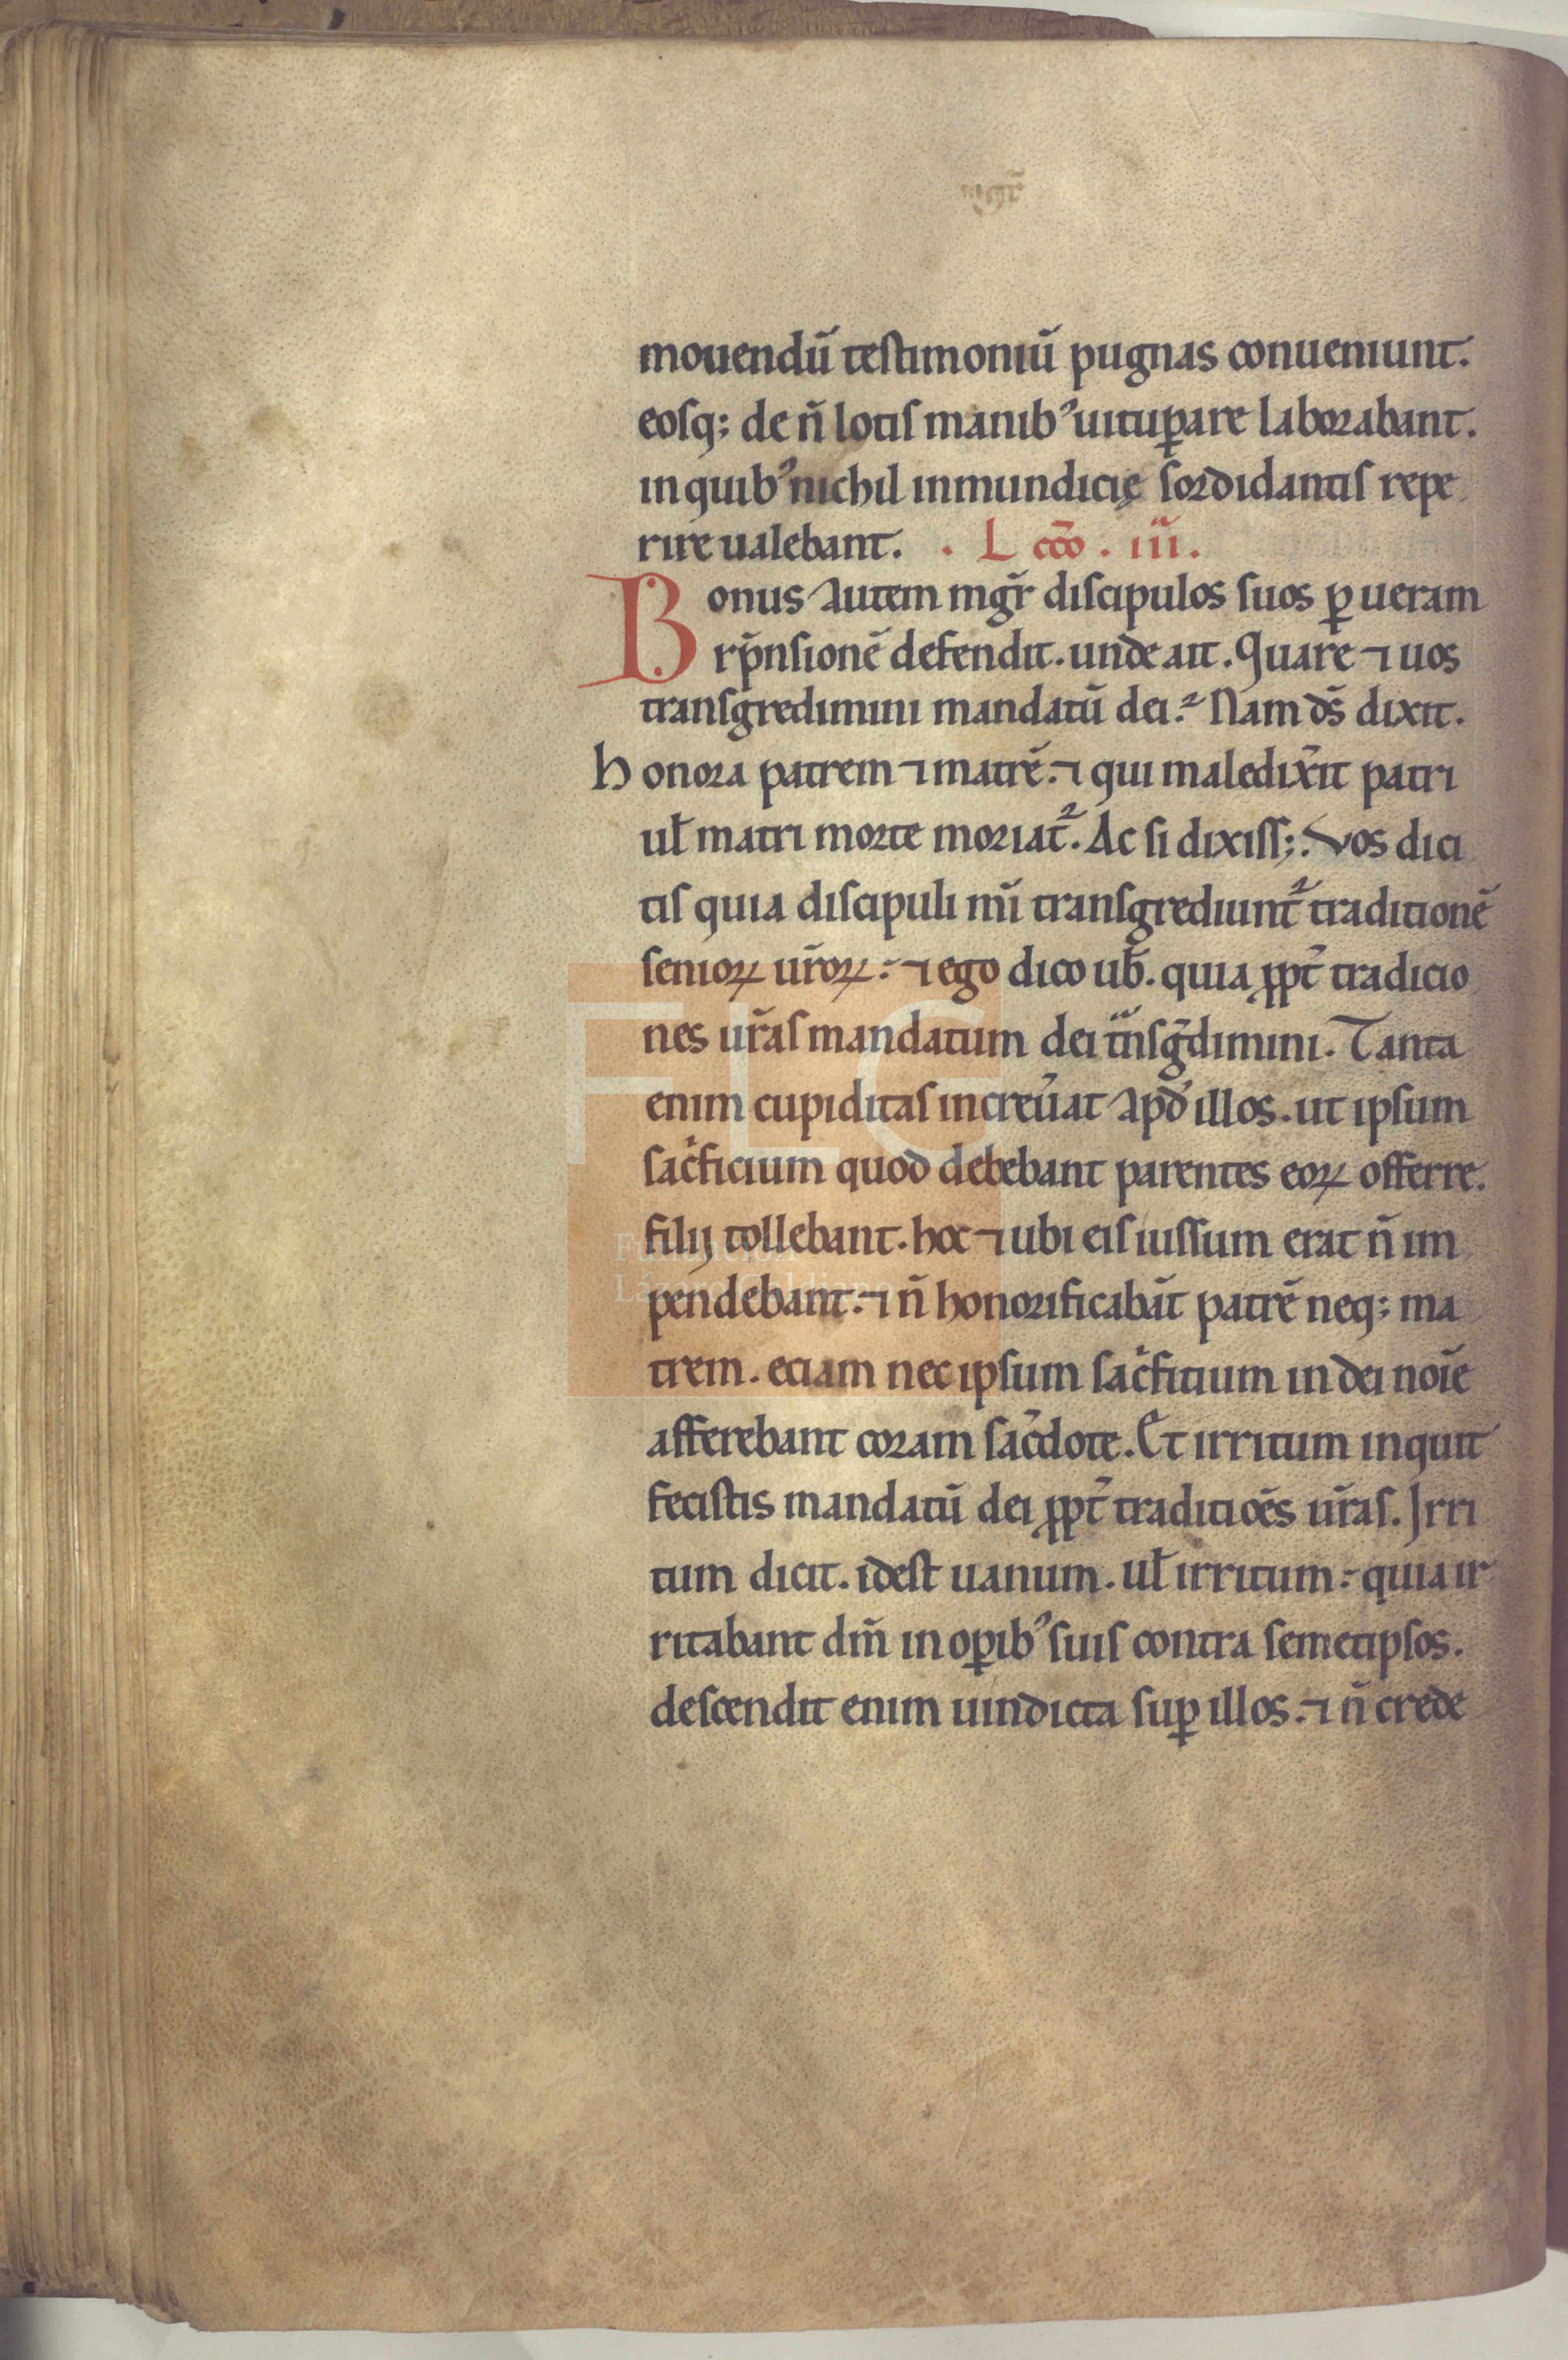 mouendū testimoniū pugnas conueniunt.
eosq; de n̄ lotis manibꝰ uituꝑare laborabant.
in quibꝰ nichil inmundicię sordidantis repe
rire ualebant. . L cc̄o . iii.
Bonus autem mgr̄ discipulos suos ꝑ ueram
rp̄nsionē defendit. unde ait. Quare ⁊ uos
transgredimini mandatū dei? Nam ds̄ dixit.
honora patrem ⁊ matrē. ⁊ qui maledix̄it patri
ul̄ matri morte moriat᷑. Ac si dixiss;. Vos dici
tis quia discipuli mī transgrediunt᷑ traditionē
senioꝝ ur̄oꝝ. ⁊ ego dico ub̄. quia ꝓpt̄ tradicio
nes ur̄as mandatum dei tn̄sgdimini. Tanta
enim cupiditas increūat apd̄ illos. ut ipsum
sac̄ficium quod debebant parentes eoꝝ offerre.
filij tollebant. hoc ⁊ ubi eis iussum erat n̄ im
pendebant. ⁊ n̄ honorificabāt patrē neq; ma
trem. eciam nec ipsum sac̄ficium in dei noīe
afferebant coram sac̄dote. Et irritum inquit
fecistis mandatū dei ꝓpt̄ traditiōes ur̄as. Irri
tum dicit. idest uanum. ul̄ irritum. quia ir
ritabant dm̄ in oꝑibꝰ suis contra semetipsos.
descendit enim uindicta suꝑ illos. ⁊ n̄ crede
FLG
Lázaro Galdiano